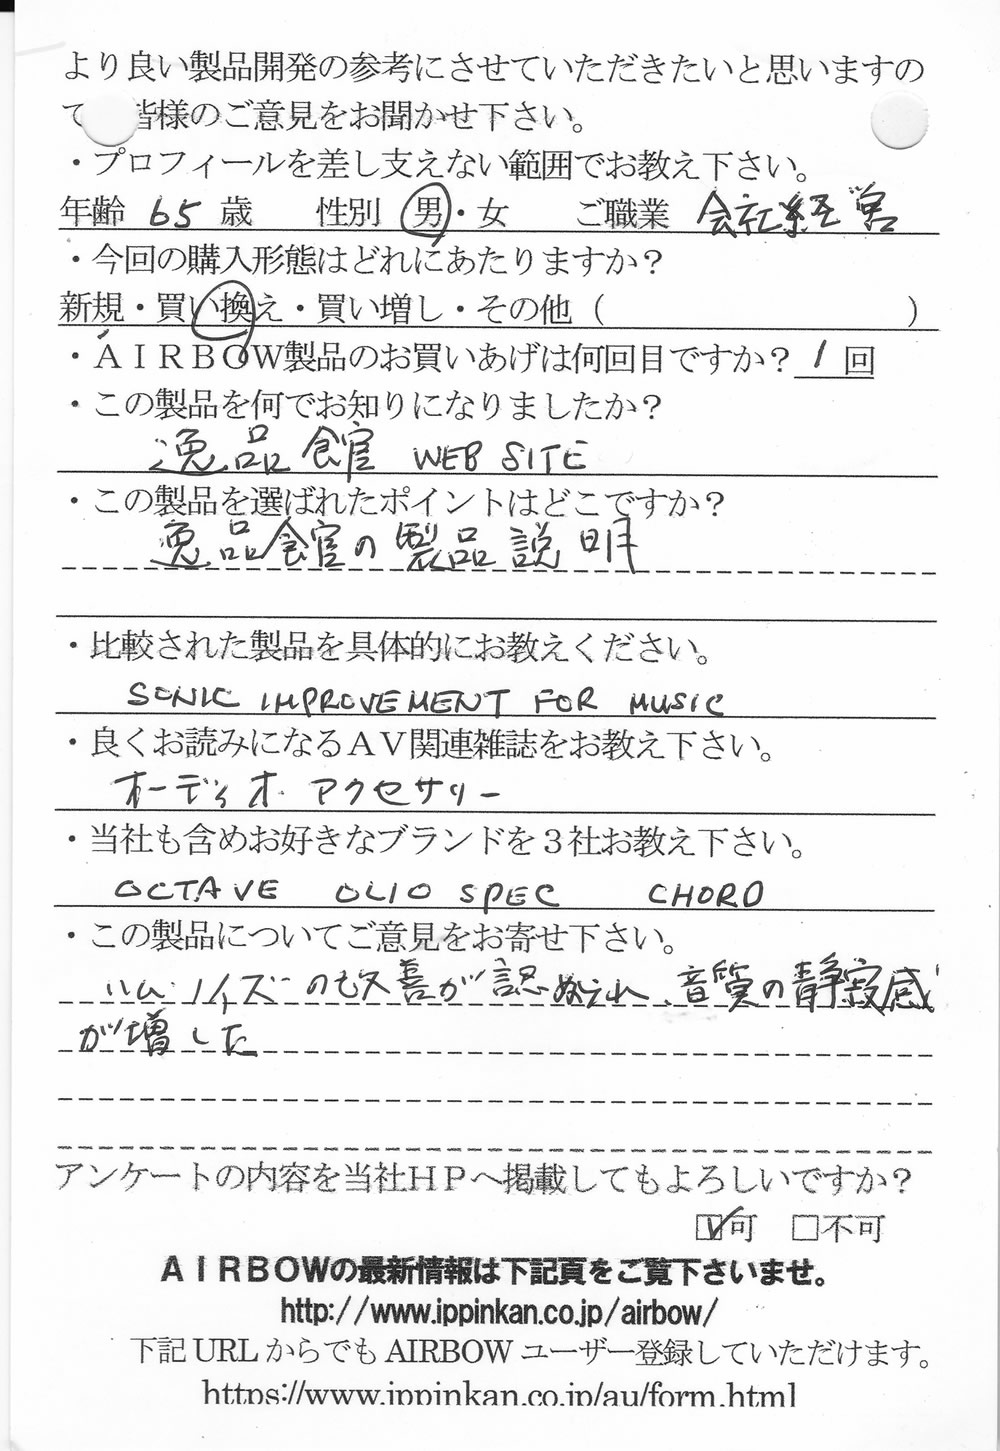 より良い製品開発の参考にさせていただきたいと思いますの
で 皆様のご意見をお聞かせ下さい。
・プロフィールを差し支えない範囲でお教え下さい。
年齢 65 歳 性別 男・女 ご職業 会社経営
・今回の購入形態はどれにあたりますか？
新規・買い換え・買い増し・その他（ ）
・ＡＩＲＢＯＷ製品のお買いあげは何回目ですか？ 1 回
・この製品を何でお知りになりましたか？
逸品館 WEB SITE
・この製品を選ばれたポイントはどこですか？
逸品館の製品説明
・比較された製品を具体的にお教えください。
SONIC IMPROVEMENT FOR MUSIC
・良くお読みになるＡＶ関連雑誌をお教え下さい。
オーディオ アクセサリー
・当社も含めお好きなブランドを３社お教え下さい。
OCTAVE OLIO SPEC CHORD
・この製品についてご意見をお寄せ下さい。
ハム・ノイズの改善が認められ、音質の静寂感
が増した
アンケートの内容を当社ＨＰへ掲載してもよろしいですか？
☑可 □不可
ＡＩＲＢＯＷの最新情報は下記頁をご覧下さいませ。
http://www.ippinkan.co.jp/airbow/
下記 URL からでも AIRBOW ユーザー登録していただけます。
https://www.ippinkan.co.jp/au/form.html